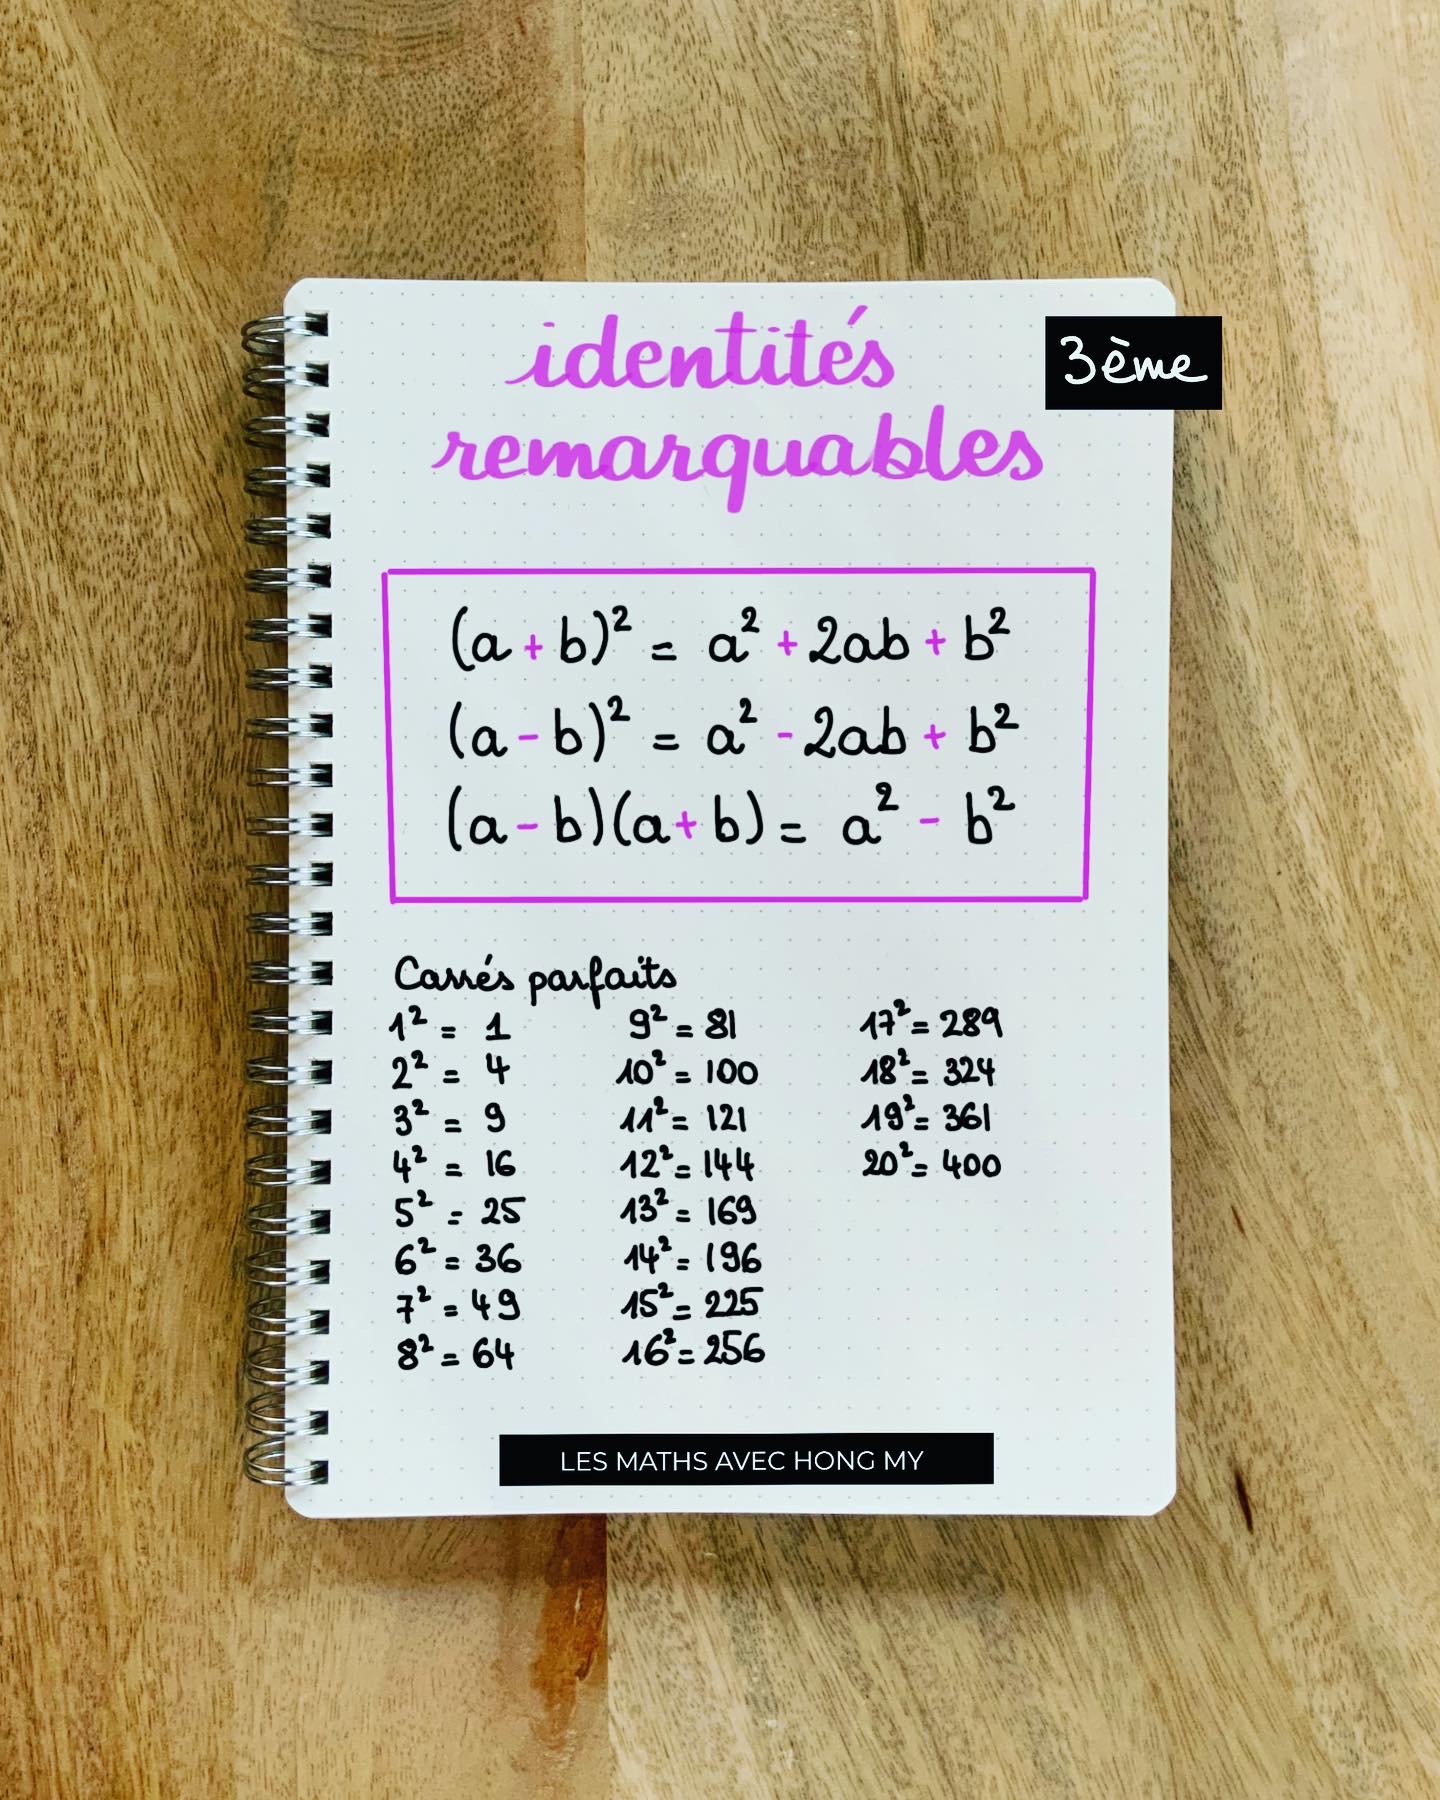 identités
remarquables
3ème
(a + b)² = a² + 2ab + b²
(a - b)² = a² - 2ab + b²
(a - b)(a + b) = a² - b²
Carrés parfaits
1² = 1
2² = 4
3² = 9
4² = 16
5² = 25
6² = 36
7² = 49
8² = 64
9² = 81
10² = 100
11² = 121
12² = 144
13² = 169
14² = 196
15² = 225
16² = 256
17² = 289
18² = 324
19² = 361
20² = 400
LES MATHS AVEC HONG MY